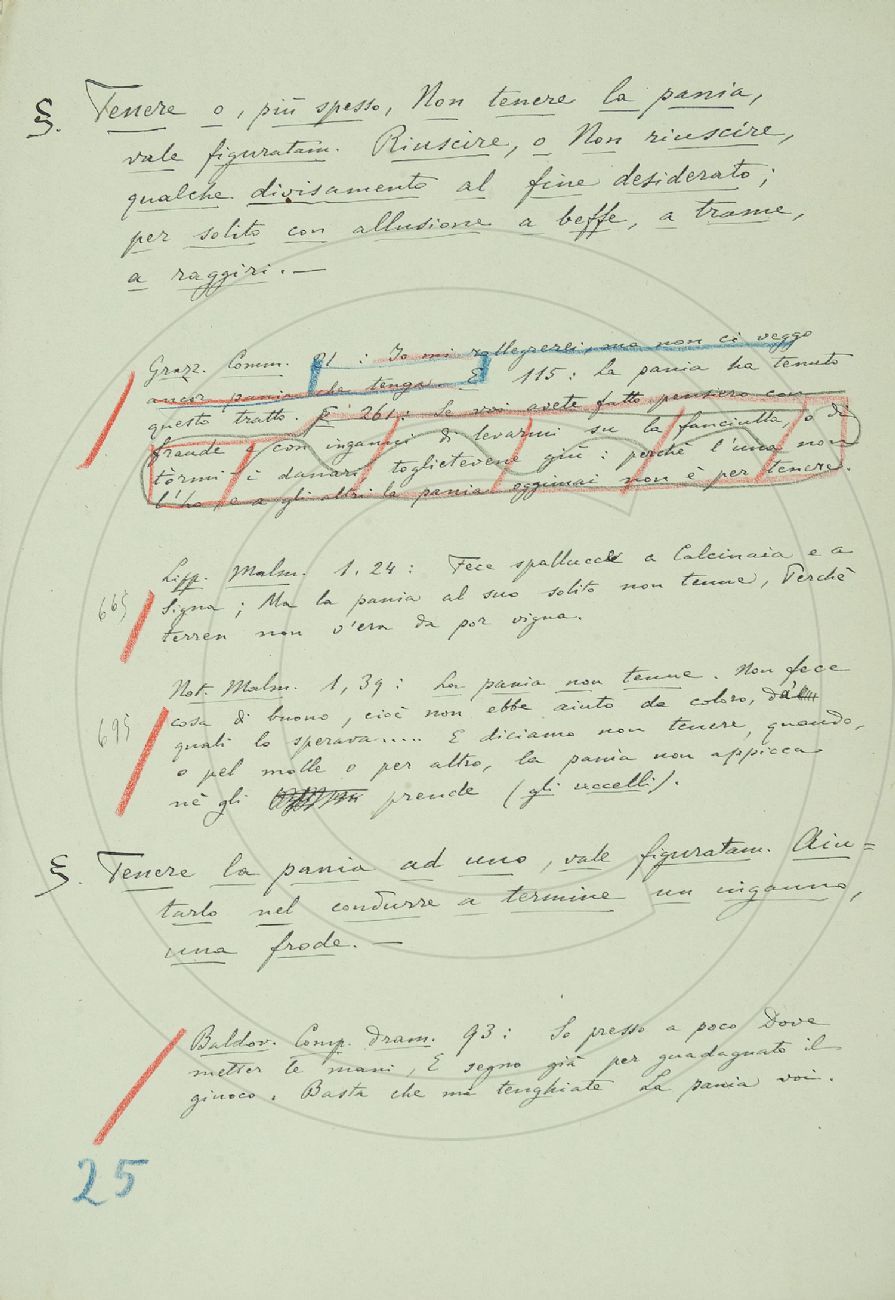 §. Tenere o, più spesso, Non tenere la pania,
vale figuratam. Riuscire, o Non riuscire,
qualche divisamento al fine desiderato;
per solito con allusione a beffe, a trame,
a raggiri. —
Grazz. Comm. 21 : Io mi rallegrerei, ma non ci veggo
ancor pania che tenga. E 115 : La pania ha tenuto
questo tratto. E 261 : Se voi avete fatto pensiero con
fraude e con inganni di levarmi su la fanciulla, o di
tòrmi i danari, toglietevene giù : perchè l'una non
l'ho, e a gli altri la pania oggimai non è per tenere.
Lipp. Malm. 1, 24 : Fece spallucce a Calcinaia e a
665 Signa ; Ma la pania al suo solito non tenne, Perchè
terren non v'era da por vigna.
Not. Malm. 1, 39 : La pania non tenne. Non fece
695 cosa di buono, cioè non ebbe aiuto da coloro, da'
quali lo sperava..... E diciamo non tenere, quando,
o pel molle o per altro, la pania non appicca
nè gli prende (gli uccelli).
§. Tenere la pania ad uno, vale figuratam. Aiu=
tarlo nel condurre a termine un inganno,
una frode. —
Baldov. Comp. dram. 93 : So presso a poco Dove
metter le mani, E segno già per guadagnato il
giuoco. Basta che mi tenghiate La pania voi.
25